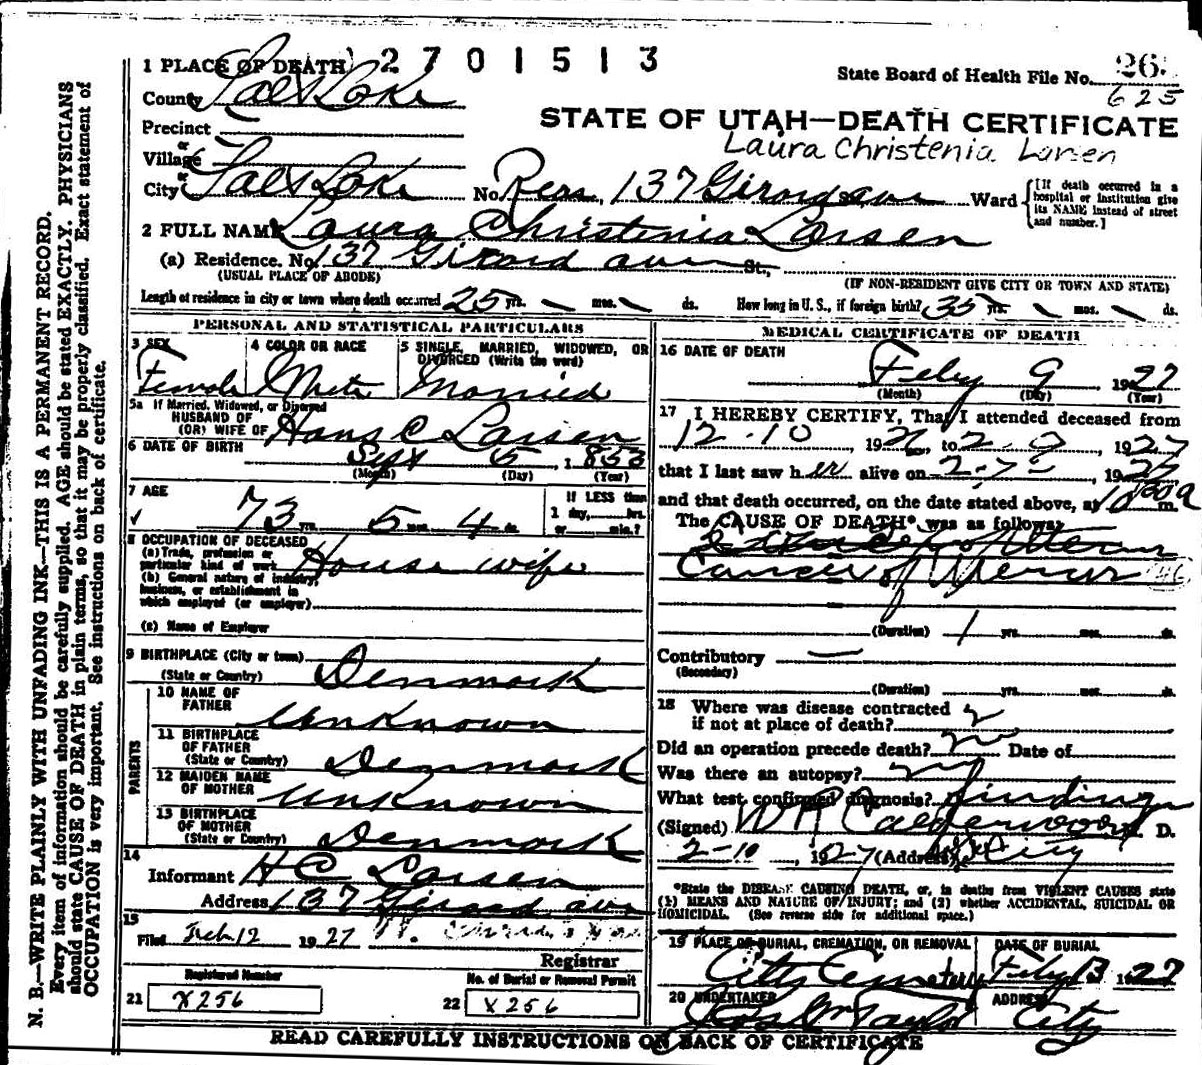 2701513
1 PLACE OF DEATH
State Board of Health File No. 26
625
County Salt Lake
STATE OF UTAH—DEATH CERTIFICATE
Precinct
or
Laura Christenia Larsen
Village
or
City Salt Lake No. Res. 137 Girard ave Ward [If death occurred in a hospital or institution give its NAME instead of street and number.]
2 FULL NAME Laura Christenia Larsen
(a) Residence. No. 137 Girard ave St.,
(USUAL PLACE OF ABODE) (IF NON-RESIDENT GIVE CITY OR TOWN AND STATE)
Length of residence in city or town where death occurred 25 yrs. mos. ds. How long in U. S., if foreign birth? 35 yrs. mos. ds.
PERSONAL AND STATISTICAL PARTICULARS
3 SEX
Female
4 COLOR OR RACE
White
5 SINGLE, MARRIED, WIDOWED, OR
DIVORCED (Write the word)
Married
5a If Married, Widowed, or Divorced
HUSBAND OF
(OR) WIFE OF Hans C Larsen
6 DATE OF BIRTH
Sept 5, 1853
(Month) (Day) (Year)
7 AGE
73 yrs. 5 mos. 4 ds.
If LESS than
1 day, hrs.
or min.?
8 OCCUPATION OF DECEASED
(a) Trade, profession or
particular kind of work House wife
(b) General nature of industry,
business, or establishment in
which employed (or employer)
(c) Name of Employer
9 BIRTHPLACE (City or town)
(State or Country) Denmark
PARENTS
10 NAME OF
FATHER Unknown
11 BIRTHPLACE
OF FATHER
(State or Country) Denmark
12 MAIDEN NAME
OF MOTHER Unknown
13 BIRTHPLACE
OF MOTHER
(State or Country) Denmark
14
Informant H C Larsen
Address 137 Girard ave
15
Filed Feb. 12 1927
Registrar
Registered Number
21 X256
No. of Burial or Removal Permit
22 X256
MEDICAL CERTIFICATE OF DEATH
16 DATE OF DEATH
Feby 9 1927
(Month) (Day) (Year)
17 I HEREBY CERTIFY, That I attended deceased from
12-10 1926, to 2-9, 1927
that I last saw her alive on 2-7- 1927
and that death occurred, on the date stated above, at 10 30 a m.
The CAUSE OF DEATH* was as follows:
Cancer of Uterus
(Duration) 1 yrs. mos. ds.
Contributory
(Secondary)
(Duration) yrs. mos. ds.
18 Where was disease contracted
if not at place of death?
Did an operation precede death? Date of
Was there an autopsy?
What test confirmed diagnosis? findings
(Signed) W R Calderwood M. D.
2-10, 1927 (Address) City
*State the DISEASE CAUSING DEATH, or, in deaths from VIOLENT CAUSES state
(1) MEANS AND NATURE OF INJURY; and (2) whether ACCIDENTAL, SUICIDAL OR
HOMICIDAL. (See reverse side for additional space.)
19 PLACE OF BURIAL, CREMATION, OR REMOVAL
City Cemetery
DATE OF BURIAL
Feby 13 1927
20 UNDERTAKER
Jos Wm Taylor
ADDRESS
City
READ CAREFULLY INSTRUCTIONS ON BACK OF CERTIFICATE
N. B.—WRITE PLAINLY WITH UNFADING INK—THIS IS A PERMANENT RECORD.
Every item of information should be carefully supplied. AGE should be stated EXACTLY. PHYSICIANS
should state CAUSE OF DEATH in plain terms, so that it may be properly classified. Exact statement of
OCCUPATION is very important. See instructions on back of certificate.